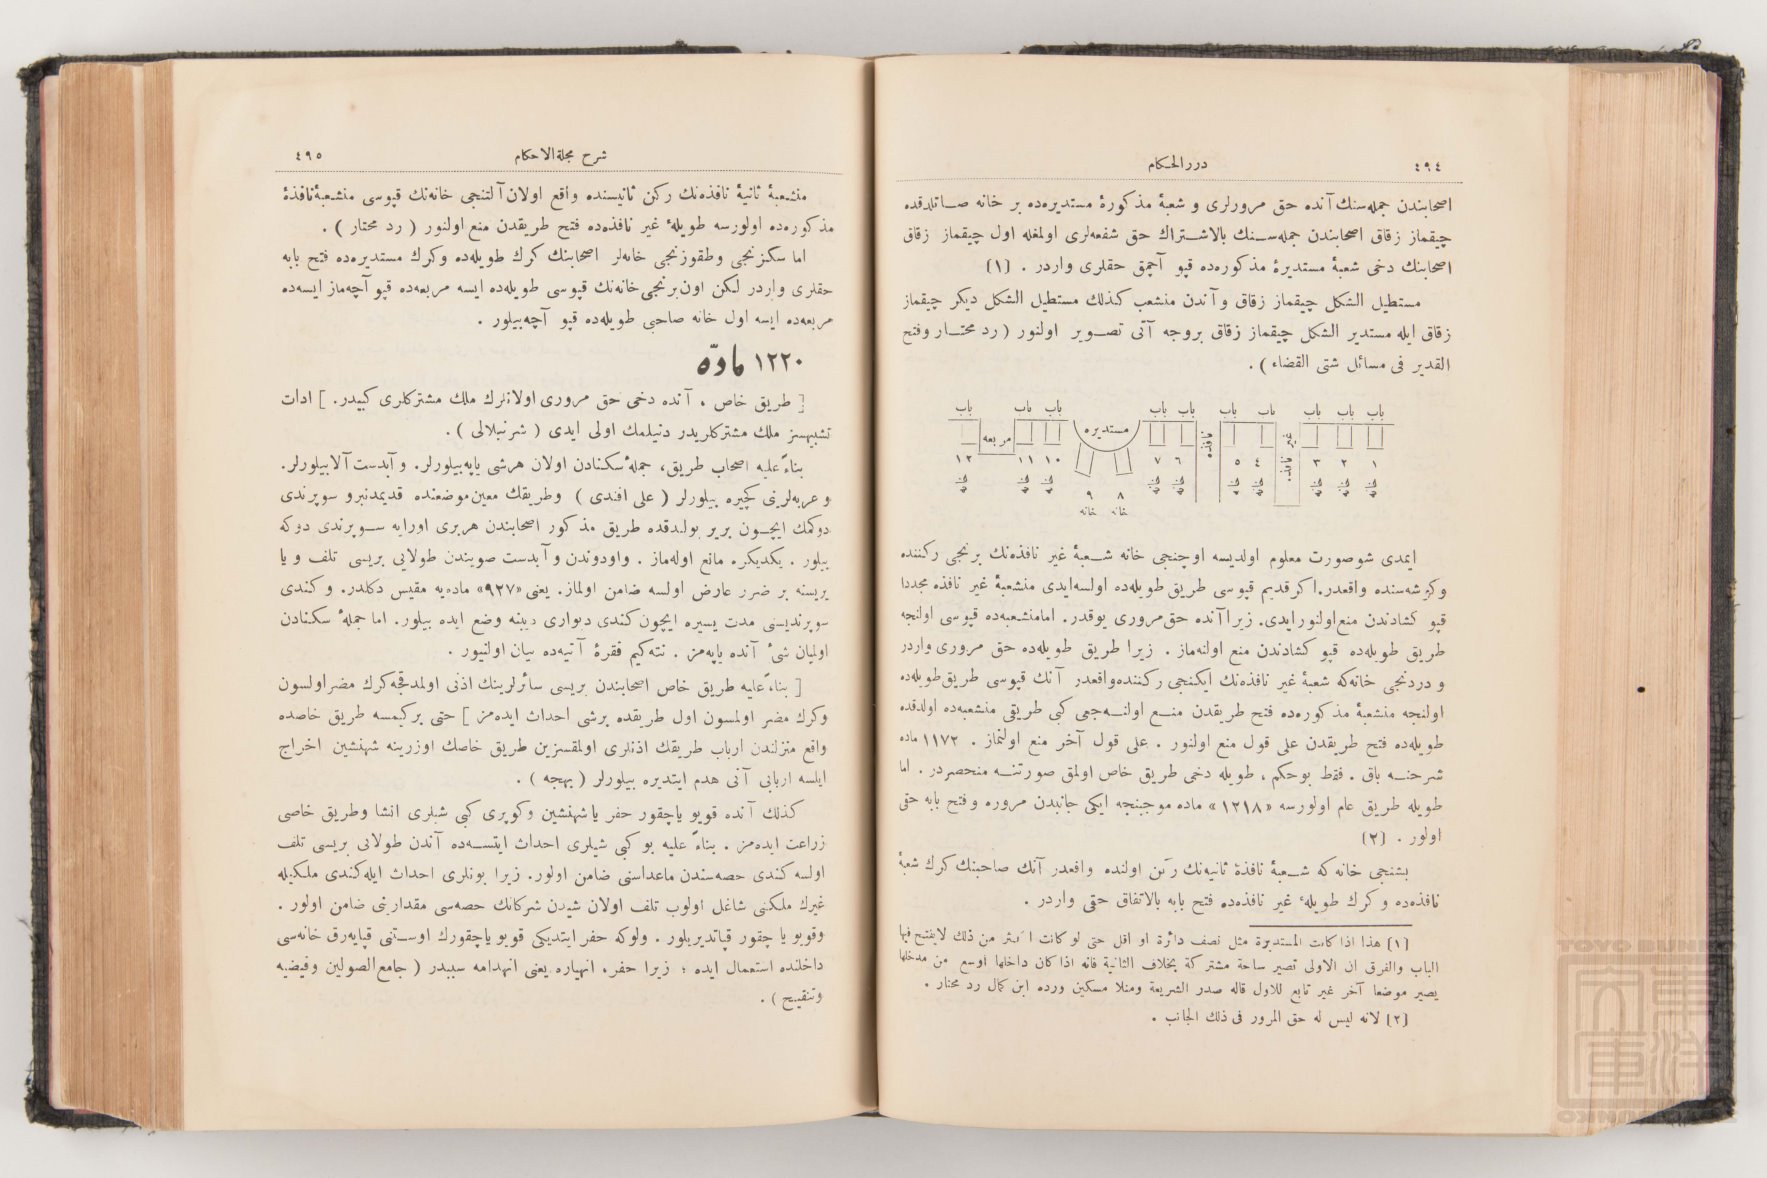 ٤٩٤
درر الحكام
اصحابندن جمله‌سنك آنده حق مرورلری و شعبهٔ مذكورهٔ مستديره‌ده بر خانه صاتلدقده
چيقماز زقاق اصحابندن جمله‌سنك بالاشتراك حق شفعه‌لری اولمغله اول چيقماز زقاق
اصحابنك دخی شعبهٔ مستديرهٔ مذكوره‌ده قپو آچمق حقلری واردر . (١)
مستطيل الشكل چيقماز زقاق و آندن منشعب كذلك مستطيل الشكل ديكر چيقماز
زقاق ايله مستدير الشكل چيقماز زقاق بروجه آتی تصوير اولنور ( رد محتار وفتح
القدير فی مسائل شتی القضاء ) .
باب باب باب باب باب باب باب باب باب باب
غير نافذه نافذه مستديره مربعه
١ ٢ ٣ ٤ ٥ ٦ ٧ ١٠ ١١ ١٢
خانه خانه خانه خانه خانه خانه خانه خانه خانه خانه
٨ ٩
خانه خانه
ايمدی شو صورت معلوم اولديسه اوچنجی خانه شعبهٔ غير نافذه‌نك برنجی ركننده
وكوشه‌سنده واقعدر. اكر قديم قپوسی طريق طويله‌ده اولسه‌ايدی منشعبهٔ غير نافذه مجددا
قپو كشادندن منع اولنورايدی. زيرا آنده حق مروری يوقدر. اما منشعبه‌ده قپوسی اولنجه
طريق طويله‌ده قپو كشادندن منع اولنه‌ماز . زيرا طريق طويله‌ده حق مروری واردر
و دردنجی خانه‌كه شعبهٔ غير نافذه‌نك ايكنجی ركننده واقعدر آنك قپوسی طريق طويله‌ده
اولنجه منشعبهٔ مذكوره‌ده فتح طريقدن منع اولنه‌جغی كبی طريقی منشعبه‌ده اولدقده
طويله‌ده فتح طريقدن علی قول منع اولنور . علی قول آخر منع اولنماز . ١١٧٢ ماده
شرحنه باق . فقط بوحكم ، طويله دخی طريق خاص اولمق صورتنه منحصردر . اما
طويله طريق عام اولورسه «١٢١٨» ماده موجبنجه ايكی جانبدن مروره و فتح بابه حقی
اولور . (٢)
بشنجی خانه كه شعبهٔ نافذهٔ ثانيه‌نك ركن اولنده واقعدر آنك صاحبنك كرك شعبهٔ
نافذه‌ده و كرك طويلهٔ غير نافذه‌ده فتح بابه بالاتفاق حقی واردر .
(١) هذا اذا كانت المستديرة مثل نصف دائرة او اقل حتی لو كانت اكثر من ذلك لايفتح فيها
الباب والفرق ان الاولی تصير ساحة مشتركة بخلاف الثانية فانه اذا كان داخلها اوسع من مدخلها
يصير موضعا آخر غير تابع للاول قاله صدر الشريعة ومنلا مسكين ورده ابن كمال رد محتار .
(٢) لانه ليس له حق المرور فی ذلك الجانب .
شرح مجلة الاحكام
٤٩٥
منشعبهٔ ثانيهٔ نافذه‌نك ركن ثانيسنده واقع اولان آلتنجی خانه‌نك قپوسی منشعبهٔ نافذهٔ
مذكوره‌ده اولورسه طويلهٔ غير نافذه‌ده فتح طريقدن منع اولنور ( رد محتار ) .
اما سكزنجی وطقوزنجی خانه‌لر اصحابنك كرك طويله‌ده وكرك مستديره‌ده فتح بابه
حقلری واردر لكن اون برنجی خانه‌نك قپوسی طويله‌ده ايسه مربعه‌ده قپو آچه‌ماز ايسه‌ده
مربعه‌ده ايسه اول خانه صاحبی طويله‌ده قپو آچه‌بيلور .
١٢٢٠ مادّه
[ طريق خاص ، آنده دخی حق مروری اولانلرك ملك مشتركلری كبيدر. ] ادات
تشبيهسز ملك مشتركلريدر دنيلمك اولی ايدی ( شرنبلالی ) .
بناءً عليه اصحاب طريق، جملهٔ سكنادن اولان هرشی ياپه‌بيلورلر. و آبدست آلابيلورلر.
و عربه‌لرينی كچيره بيلورلر ( علی افندی ) وطريقك معين موضعنده قديمدنبرو سوپرندی
دوكمك ايچون برير بولندقده طريق مذكور اصحابندن هربری اورايه سوپرندی دوكه
بيلور . يكديكره مانع اوله‌ماز . واودوندن و آبدست صويندن طولايی بريسی تلف و يا
بريسنه بر ضرر عارض اولسه ضامن اولماز. يعنی «٩٢٧» ماده‌يه مقيس دكلدر. و كندی
سوپرنديسنی مدت يسيره ايچون كندی ديواری ديبنه وضع ايده بيلور. اما جملهٔ سكنادن
اولميان شیٔ آنده ياپه‌مز . نته‌كيم فقرهٔ آتيه‌ده بيان اولنيور .
[ بناءً عليه طريق خاص اصحابندن بريسی سائرلرينك اذنی اولمدقجه كرك مضر اولسون
وكرك مضر اولمسون اول طريقده برشی احداث ايده‌مز ] حتی بركيمسه طريق خاصده
واقع منزلندن ارباب طريقك اذنلری اولمقسزين طريق خاصك اوزرينه شهنشين اخراج
ايلسه اربابی آنی هدم ايتديره بيلورلر ( بهجه ) .
كذلك آنده قويو ياچقور حفر ياشهنشين وكوپری كبی شيلری انشا وطريق خاصی
زراعت ايده‌مز . بناءً عليه بو كبی شيلری احداث ايتسه‌ده آندن طولايی بريسی تلف
اولسه كندی حصه‌سندن ماعداسنی ضامن اولور. زيرا بونلری احداث ايله كندی ملكيله
غيرك ملكنی شاغل اولوب تلف اولان شيدن شركانك حصه‌سی مقدارينی ضامن اولور .
وقويو يا چقور قپاتديريلور . ولوكه حفر ايتديكی قويو ياچقورك اوستنی قپايه‌رق خانه‌سی
داخلنده استعمال ايده ؛ زيرا حفر، انهياره يعنی انهدامه سببدر ( جامع الصولين وفيضيه
وتنقيح ) .
TOYO BUNKO